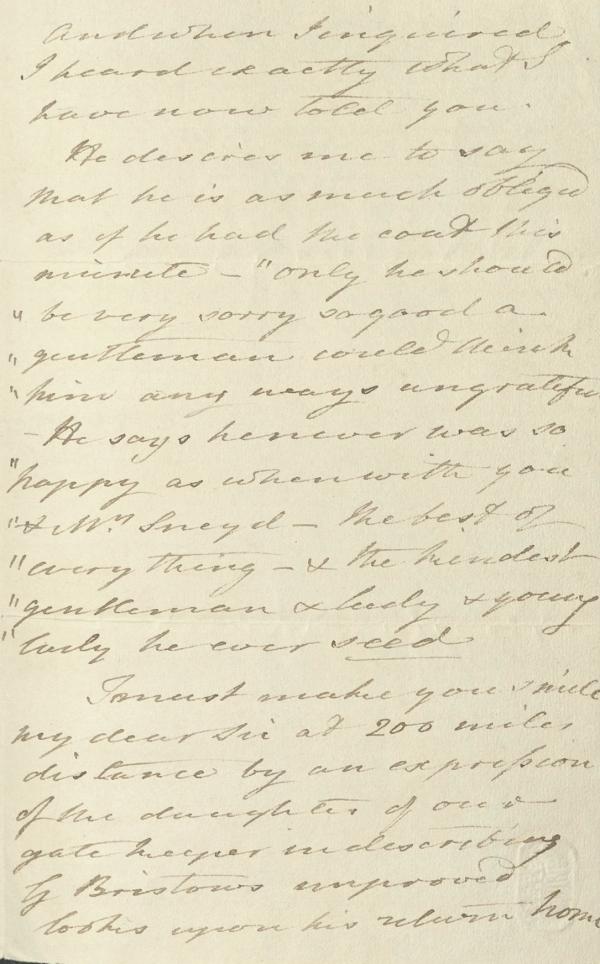 And when I inquired
I heard exactly what I
have now told you.
He desires me to say
that he is as much obliged
as if he had the coat this
minute – "only he should
" be very sorry so good a
" gentleman could think
" him any ways ungrateful
– He says he never was so
" happy as when with you
" & Mrs Sneyd – the best of
" every thing – & the kindest
" gentleman & lady & young
" lady he ever seed
I must make you smile
my dear Sir at 200 miles
distance by an expression
of the daughter of our
gate keeper in describing
G Bristows improved
looks upon his return home